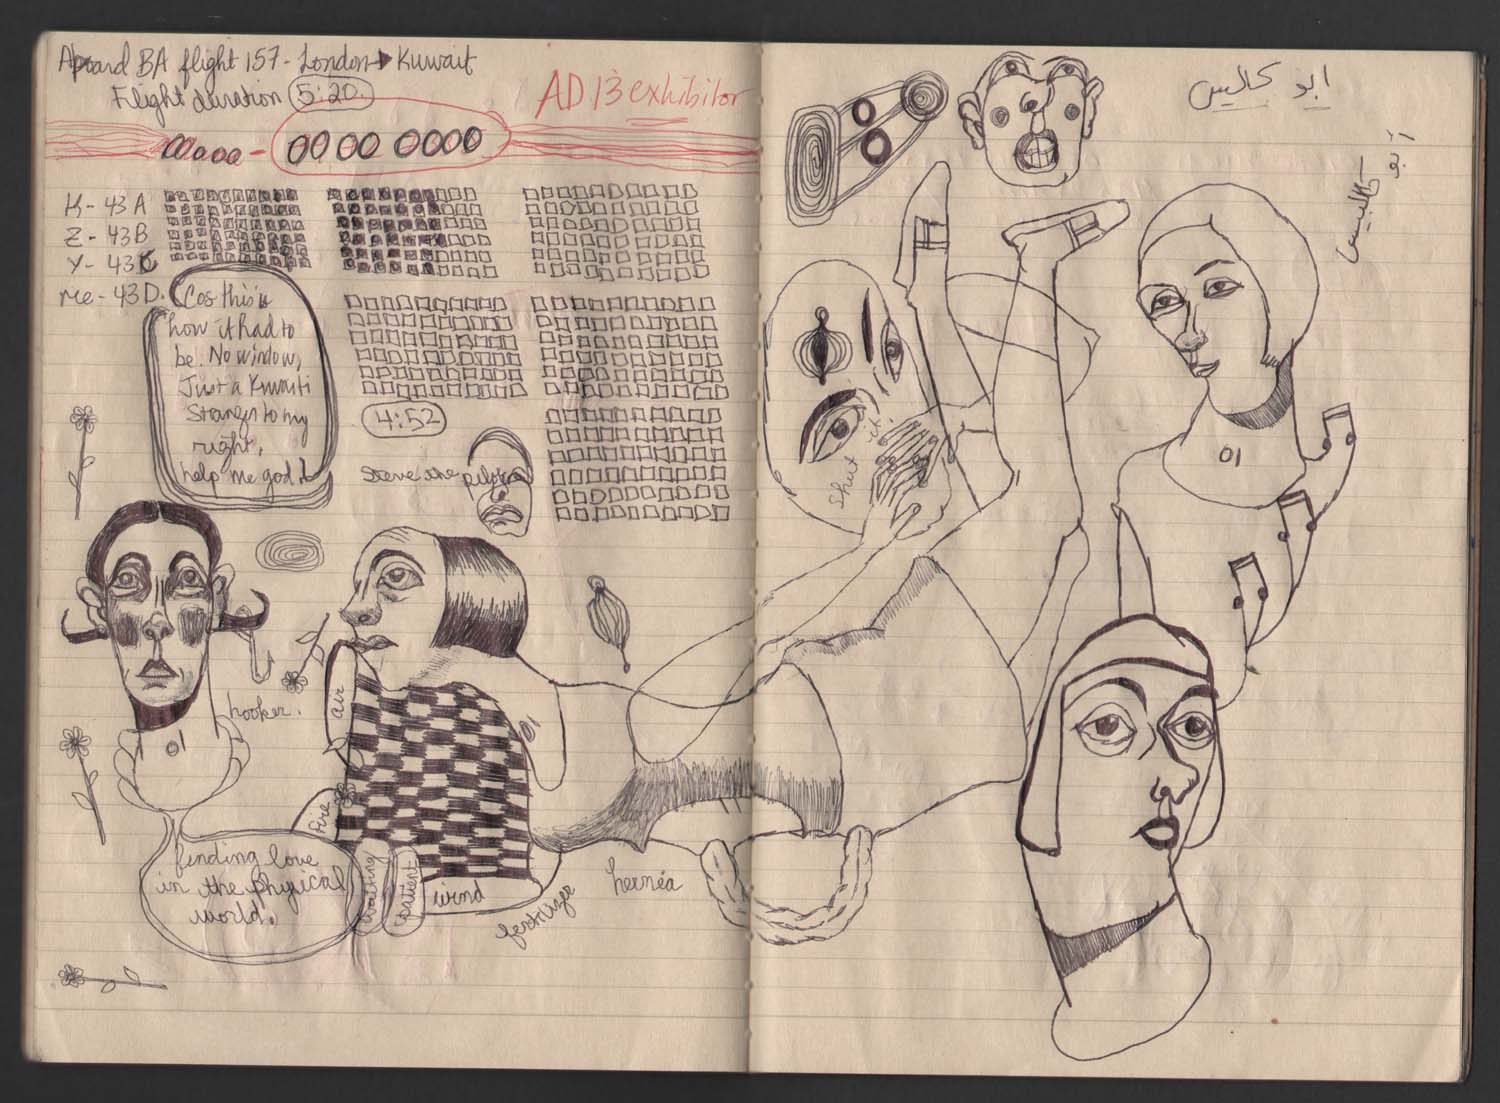 Aboard BA flight 157 - London → Kuwait
Flight duration 5:20
AD 13 exhibitor
00000 - 0000 0000
K - 43 A
Z - 43B
Y - 43C
me - 43D.
Cos this is
how it had to
be. No window,
Just a Kuwaiti
Stranger to my
right,
help me god!
4:52
Steve the pilot
hooker.
01
air
01
fire
finding love
in the physical
world.
waiting
patient
wind
fertilizer
hernéa
Shut it!
ابو كاليس
01